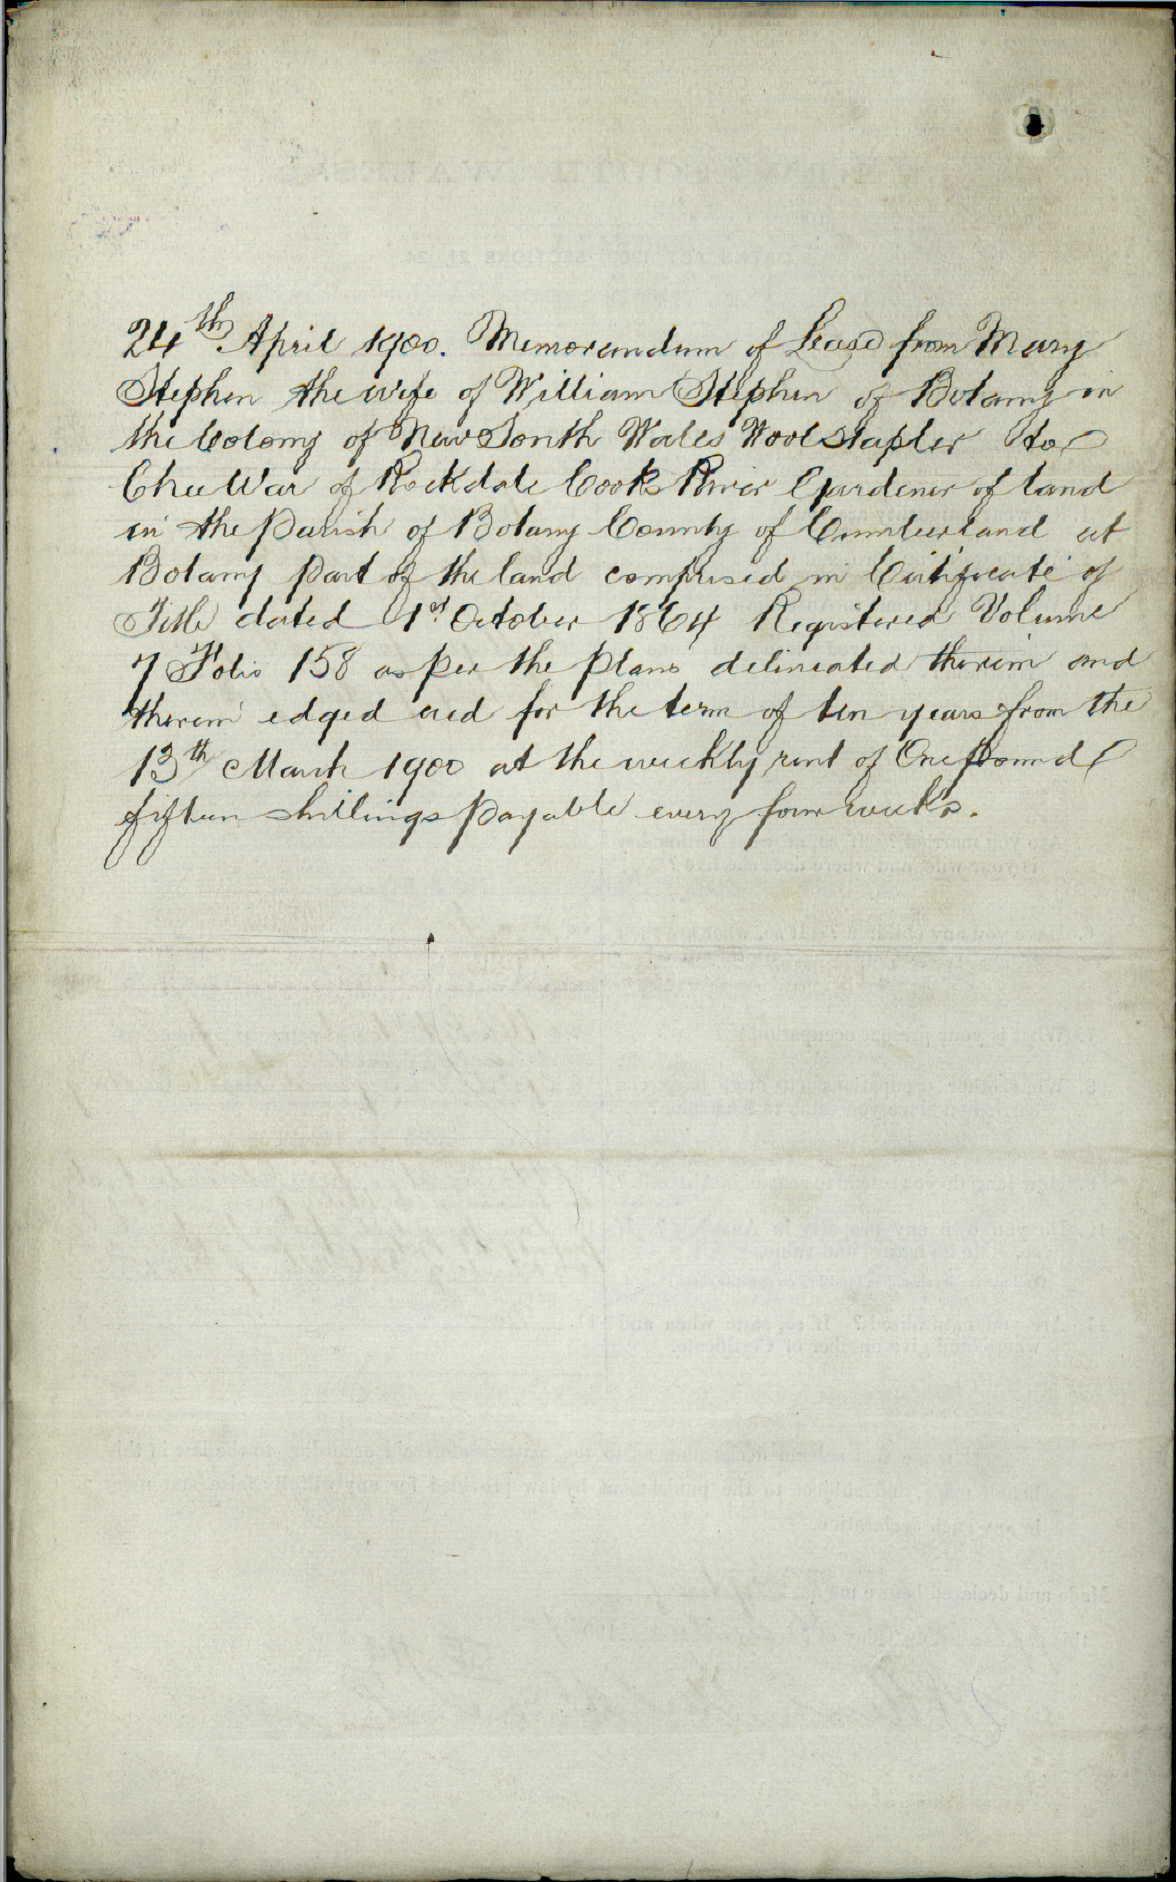 24th April 1900. Memorandum of Lease from Mary
Stephen the wife of William Stephen of Botany in
the Colony of New South Wales Woolstapler to
Chee War of Rockdale Cooks River Gardener of land
in the Parish of Botany County of Cumberland at
Botany part of the land comprised in Certificate of
Title dated 1st October 1864 Registered Volume
7 Folio 158 as per the plans delineated therein and
therein edged red for the term of ten years from the
13th March 1900 at the weekly rent of One pound
fifteen shillings payable every four weeks.